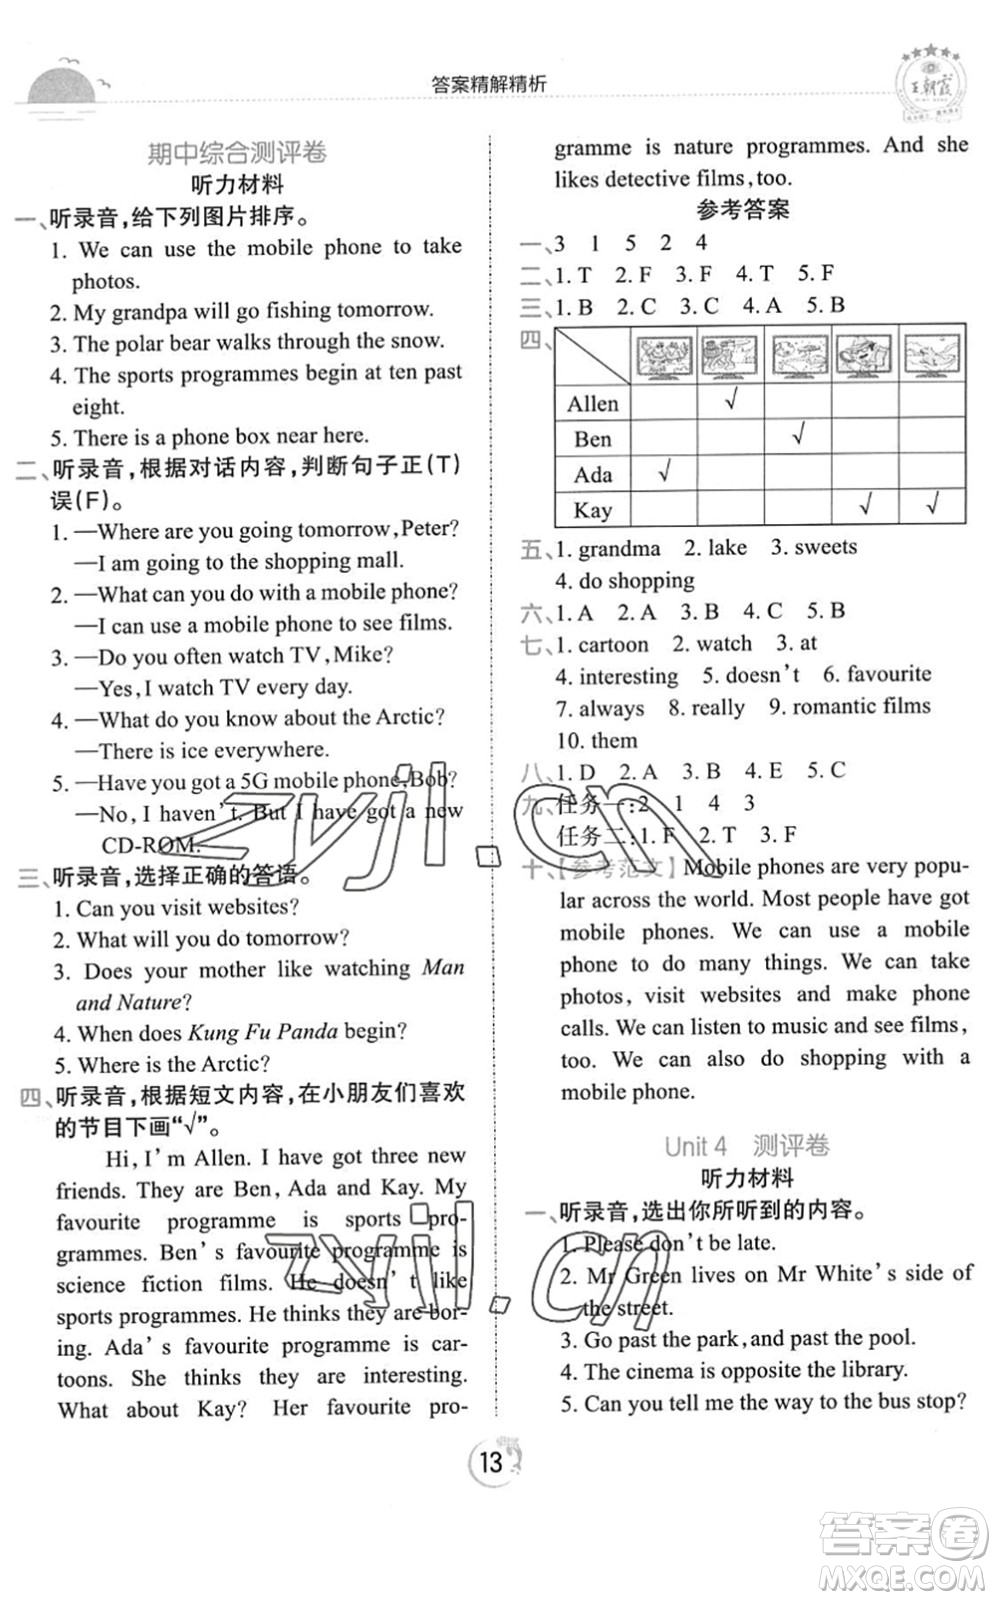 答案精解精析
王朝霞
期中综合测评卷
听力材料
一、听录音,给下列图片排序。
1. We can use the mobile phone to take
photos.
2. My grandpa will go fishing tomorrow.
3. The polar bear walks through the snow.
4. The sports programmes begin at ten past
eight.
5. There is a phone box near here.
二、听录音,根据对话内容,判断句子正(T)
误(F)。
1. —Where are you going tomorrow, Peter?
—I am going to the shopping mall.
2. —What can you do with a mobile phone?
—I can use a mobile phone to see films.
3. —Do you often watch TV, Mike?
—Yes, I watch TV every day.
4. —What do you know about the Arctic?
—There is ice everywhere.
5. —Have you got a 5G mobile phone, Bob?
—No, I haven't. But I have got a new
CD-ROM.
三、听录音,选择正确的答语。
1. Can you visit websites?
2. What will you do tomorrow?
3. Does your mother like watching Man
and Nature?
4. When does Kung Fu Panda begin?
5. Where is the Arctic?
四、听录音,根据短文内容,在小朋友们喜欢
的节目下画“√”。
Hi, I'm Allen. I have got three new
friends. They are Ben, Ada and Kay. My
favourite programme is sports pro-
grammes. Ben's favourite programme is
science fiction films. He doesn't like
sports programmes. He thinks they are bor-
ing. Ada's favourite programme is car-
toons. She thinks they are interesting.
What about Kay? Her favourite pro-
gramme is nature programmes. And she
likes detective films, too.
参考答案
一、3 1 5 2 4
二、1. T 2. F 3. F 4. T 5. F
三、1. B 2. C 3. C 4. A 5. B
四、
Allen √
Ben √
Ada √
Kay √ √
五、1. grandma 2. lake 3. sweets
4. do shopping
六、1. A 2. A 3. B 4. C 5. B
七、1. cartoon 2. watch 3. at
4. interesting 5. doesn't 6. favourite
7. always 8. really 9. romantic films
10. them
八、1. D 2. A 3. B 4. E 5. C
九、任务一:2 1 4 3
任务二:1. F 2. T 3. F
十、【参考范文】Mobile phones are very popu-
lar across the world. Most people have got
mobile phones. We can use a mobile
phone to do many things. We can take
photos, visit websites and make phone
calls. We can listen to music and see films,
too. We can also do shopping with a
mobile phone.
Unit 4 测评卷
听力材料
一、听录音,选出你所听到的内容。
1. Please don't be late.
2. Mr Green lives on Mr White's side of
the street.
3. Go past the park, and past the pool.
4. The cinema is opposite the library.
5. Can you tell me the way to the bus stop?
13
zyjl.cn
zyjl.cn
答案卷
MXQE.COM